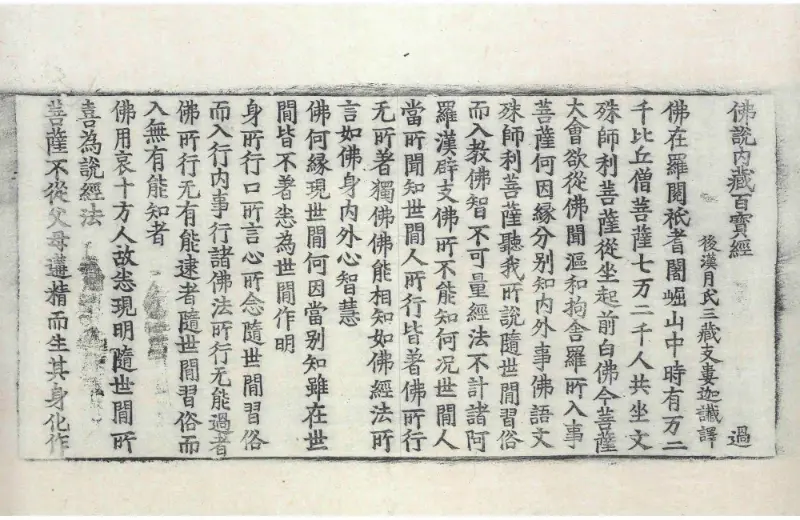 佛說內藏百寳經　過
後漢月氏三藏支婁迦讖譯
佛在羅閱祇耆闍崛山中時有万二
千比丘僧菩薩七万二千人共坐文
殊師利菩薩從坐起前白佛今菩薩
大會欲從佛聞漚和拘舍羅所入事
菩薩何因緣分別知內外事佛語文
殊師利菩薩聽我所說隨世閒習俗
而入教佛智不可量經法不計諸阿
羅漢辟支佛所不能知何況世閒人
當所聞知世閒人所行皆著佛所行
无所著獨佛佛能相知如佛經法所
言如佛身內外心智慧
佛何緣現世閒何因當別知雖在世
閒皆不著悉為世閒作明
身所行口所言心所念隨世閒習俗
而入行內事行諸佛法所行无能過者
佛所行无有能逮者隨世閒習俗而
入無有能知者
佛用哀十方人故悉現明隨世閒所
喜為說經法
菩薩不從父母遘精而生其身化作